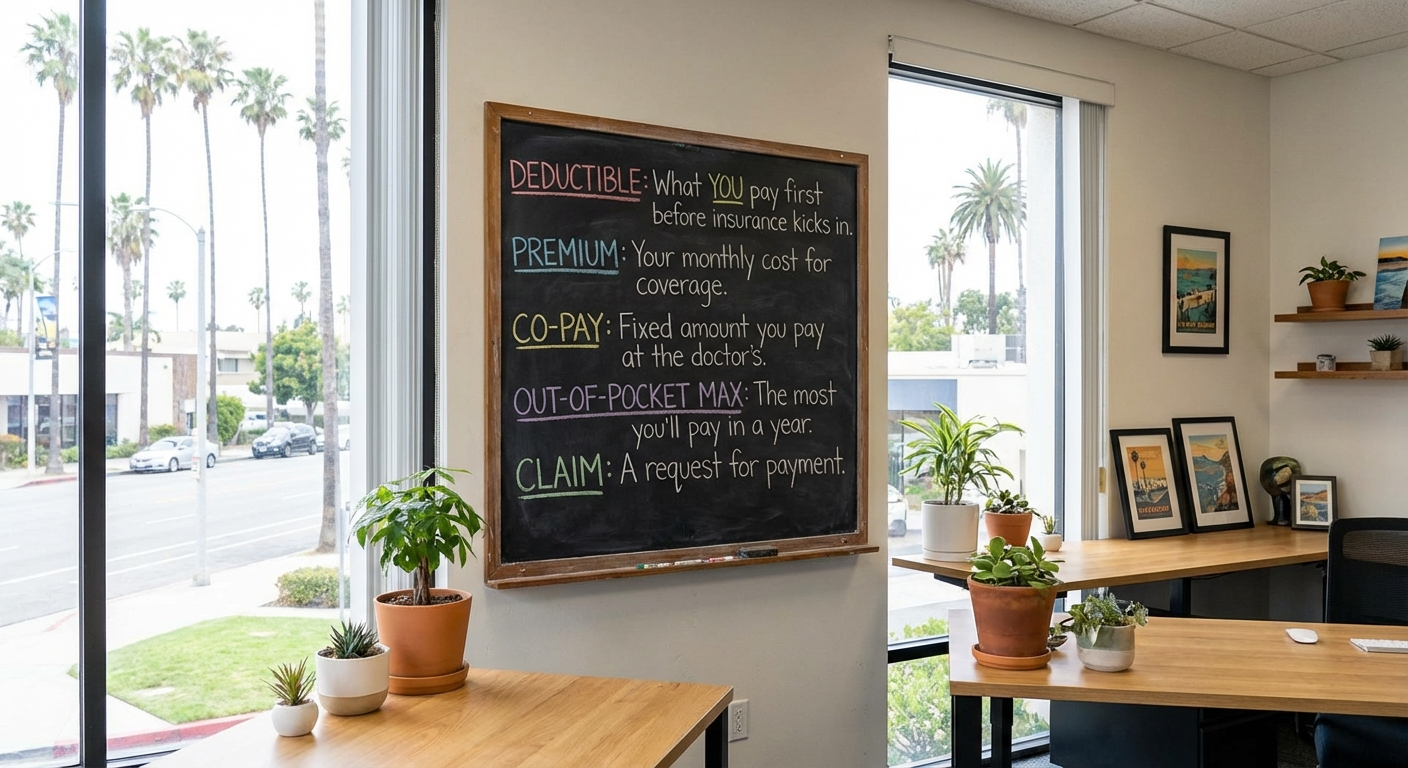 DEDUCTIBLE: What YOU pay first
before insurance kicks in.
PREMIUM: Your monthly cost for
coverage.
CO-PAY: Fixed amount you pay
at the doctor's.
OUT-OF-POCKET MAX: The most
you'll pay in a year.
CLAIM: A request for payment.